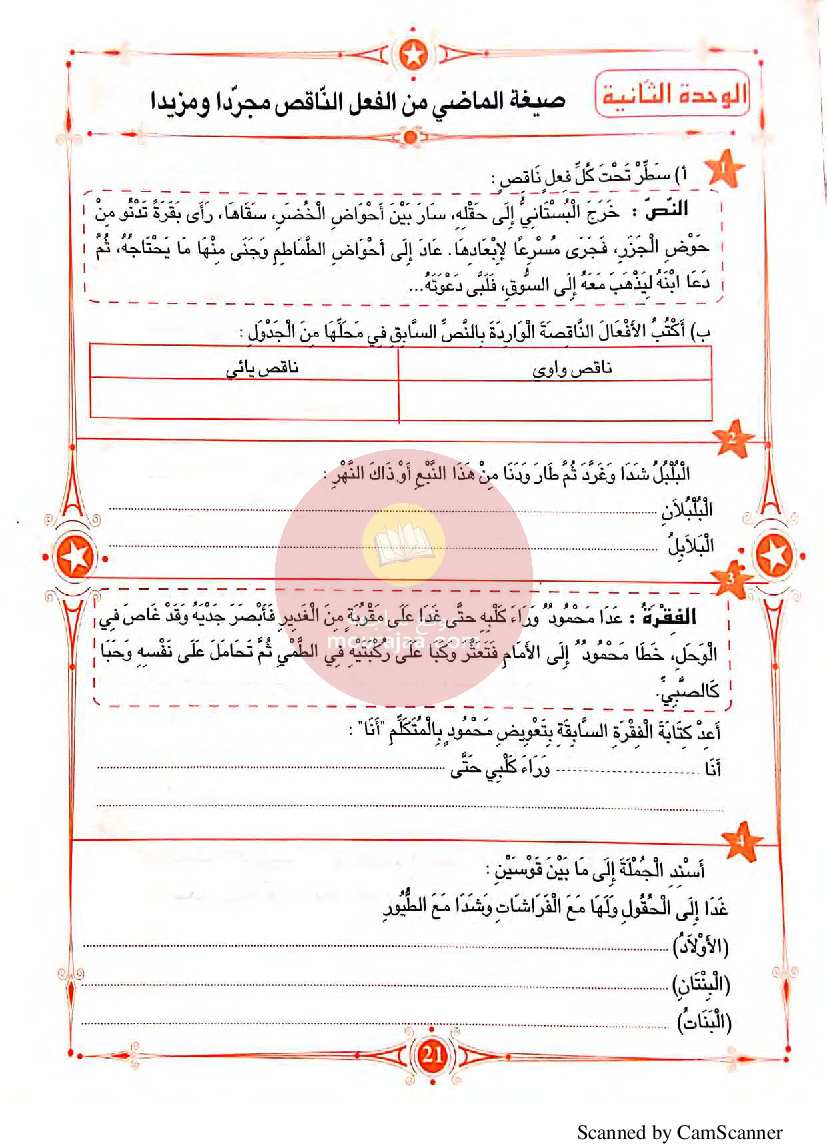 الوحدة الثّانية
صيغة الماضي من الفعل النّاقص مجرّدا ومزيدا
1
أ) سَطِّرْ تَحْتَ كُلِّ فِعلٍ نَاقِصٍ :
النّصّ : خَرَجَ الْبُسْتَانِيُّ إِلَى حَقْلِهِ، سَارَ بَيْنَ أَحْوَاضِ الْخُضَرِ، سَقَاهَا، رَأَى بَقَرَةً تَدْنُو مِنْ
حَوْضِ الْجَزَرِ، فَجَرَى مُسْرِعًا لِإبْعَادِهَا. عَادَ إِلَى أَحْوَاضِ الطَّمَاطِمِ وَجَنَى مِنْهَا مَا يَحْتَاجُهُ، ثُمَّ
دَعَا ابْنَهُ لِيَذْهَبَ مَعَهُ إِلَى السُّوقِ، فَلَبَّى دَعْوَتَهُ...
ب) أَكْتُبُ الأَفْعَالَ النَّاقِصَةَ الْوَارِدَةَ بِالنَّصِّ السَّابِقِ فِي مَحَلِّهَا مِنَ الْجَدْوَلِ :
ناقص واوي
ناقص يائي
2
الْبُلْبُلُ شَدَا وَغَرَّدَ ثُمَّ طَارَ وَدَنَا مِنْ هَذَا النَّبْعِ أَوْ ذَاكَ النَّهْرِ :
الْبُلْبُلاَنِ
الْبَلاَبِلُ
3
الفِقْرَةُ : عَدَا مَحْمُودٌ وَرَاءَ كَلْبِهِ حتَّى غَدَا عَلَى مَقْرُبَةٍ مِنَ الْغَدِيرِ فَأَبْصَرَ جَدْيَهُ وَقَدْ غَاصَ فِي
الْوَحِلِ، خَطَا مَحْمُودٌ إِلَى الأَمَامِ فَتَعَثَّرَ وَكَبَا عَلَى رُكْبَتَيْهِ فِي الطَّمْيِ ثُمَّ تَحَامَلَ عَلَى نَفْسِهِ وَحَبَا
كَالصَّبِيِّ.
أَعِدْ كِتَابَةَ الْفِقْرَةِ السَّابِقَةِ بِتَعْوِيضِ مَحْمُودٍ بِالْمُتَكَلِّمِ "أَنَا" :
أَنَا ........ وَرَاءَ كَلْبِي حَتَّى ........
4
أَسْنِدِ الْجُمْلَةَ إِلَى مَا بَيْنَ قَوْسَيْنِ :
غَدَا إِلَى الْحُقُولِ وَلَهَا مَعَ الْفَرَاشَاتِ وَشَدَا مَعَ الطُّيُورِ
(الأَوْلاَدُ)
(الْبِنْتَانِ)
(الْبَنَاتُ)
21
Scanned by CamScanner